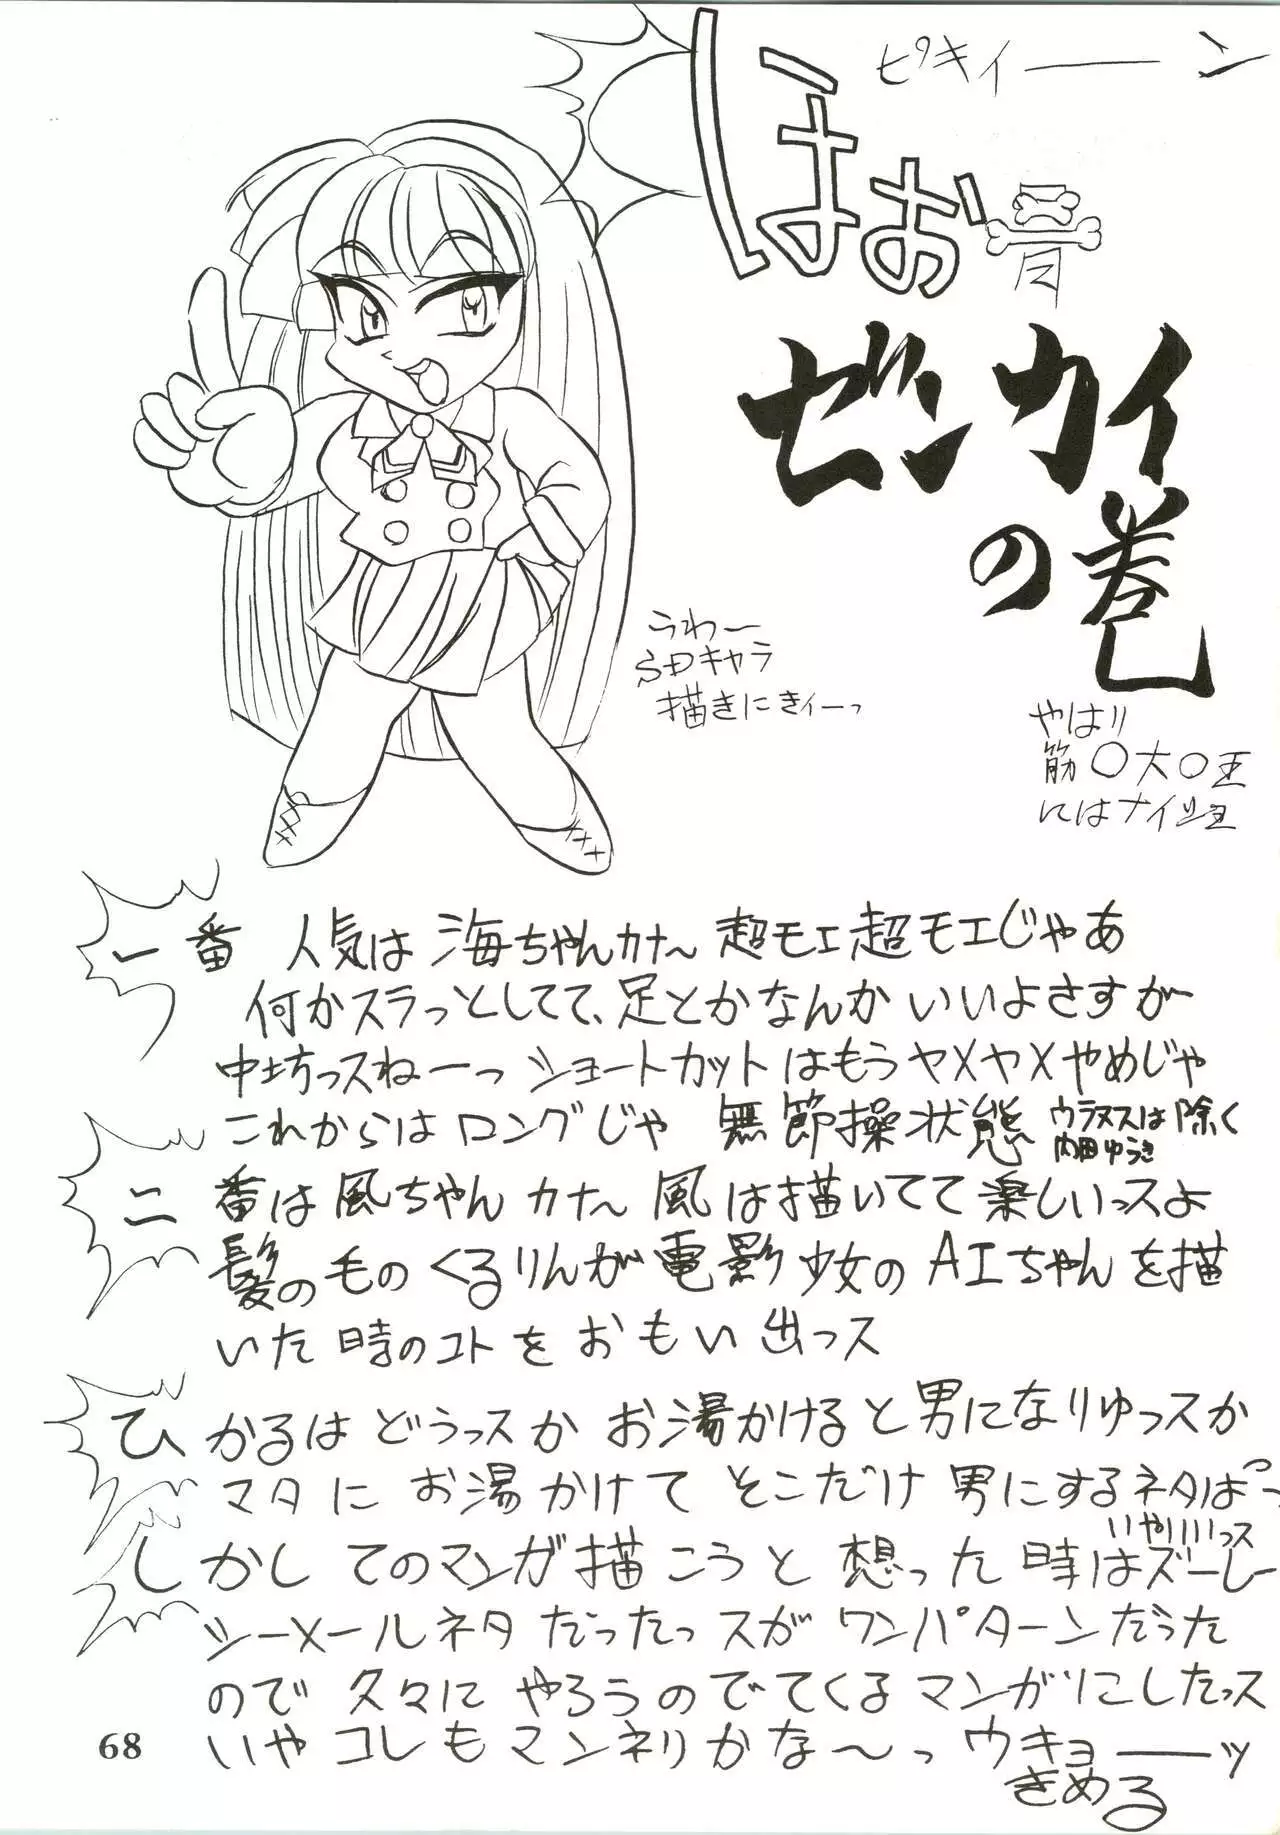 ピキィーーン
ほお骨
ゼンカイ
の巻
うわー
SDキャラ
描きにきィーっ
やはり
筋〇大〇王
にはナイショ
一番 人気は海ちゃんカナ〜超モエ超モエじゃあ
何かスラっとしてて、足とかなんかいいよさすが
中坊っスねーっ ショートカットはもうヤメヤメやめじゃ
これからはロングじゃ 無節操状態 ウラヌスは除く
内田ゆうき
二番は風ちゃんカナ〜風は描いてて楽しいっスよ
髪の毛のくるりんが電影少女のAIちゃんを描
いた時のコトをおもい出っス
ひかるはどうっスかお湯かけると男になりゆっスか
マタにお湯かけてそこだけ男にするネタはっ
いやリリリっス
しかしてのマンガ描こうと想った時はズーレー
シーメールネタだったっスがワンパターンだった
ので久々にやろうのでてくるマンガにしたっス
いやコレもマンネリかな〜っ ウキョーーッ
きめる
68